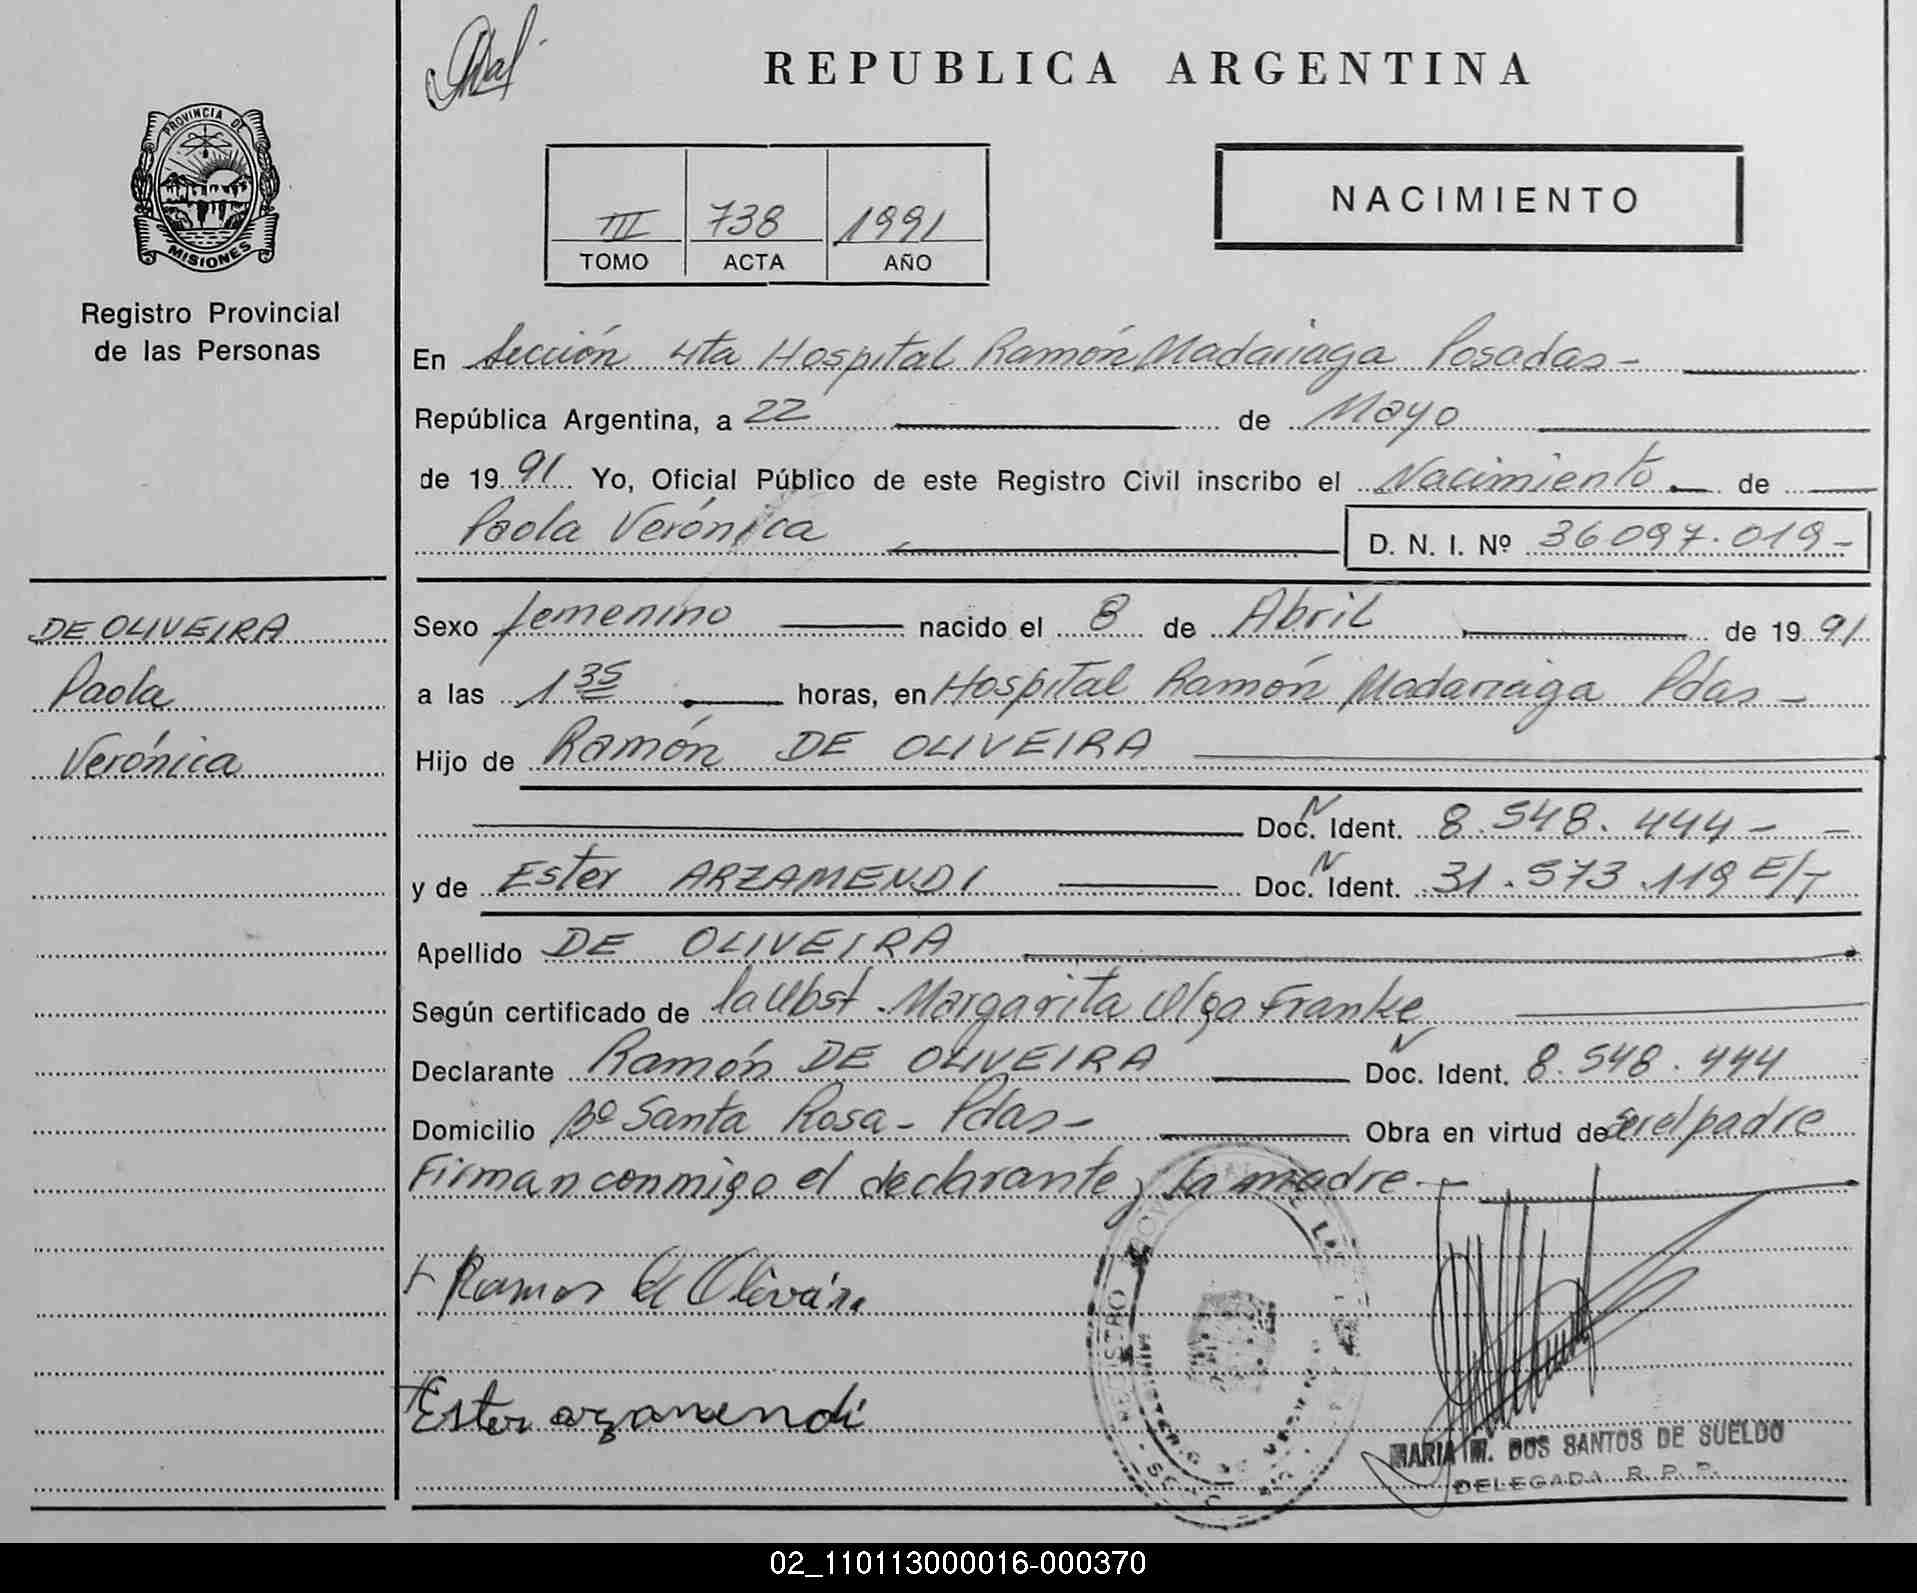 REPUBLICA ARGENTINA
PROVINCIA DE
MISIONES
Registro Provincial
de las Personas
III 738 1991
TOMO ACTA AÑO
NACIMIENTO
En Sección 4ta Hospital Ramón Madariaga Posadas-
República Argentina, a 22 de Mayo
de 1991 Yo, Oficial Público de este Registro Civil inscribo el Nacimiento de
Paola Verónica D. N. I. Nº 36097.019-
DE OLIVEIRA
Paola
Verónica
Sexo femenino nacido el 8 de Abril de 1991
a las 1 35 horas, en Hospital Ramón Madariaga Pdas-
Hijo de Ramón DE OLIVEIRA
Doc. Ident. 8.548.444-
y de Ester ARZAMENDI Doc. Ident. 31.573.119 E/T
Apellido DE OLIVEIRA
Según certificado de la Obst. Margarita Olga Franke
Declarante Ramón DE OLIVEIRA Doc. Ident. 8.548.444
Domicilio Bº Santa Rosa- Pdas- Obra en virtud de ser el padre
Firman conmigo el declarante y la madre-
Ramon de Oliveira
Ester arzamendi
MARIA M. DOS SANTOS DE SUELDO
DELEGADA R. P. P.
02_110113000016-000370